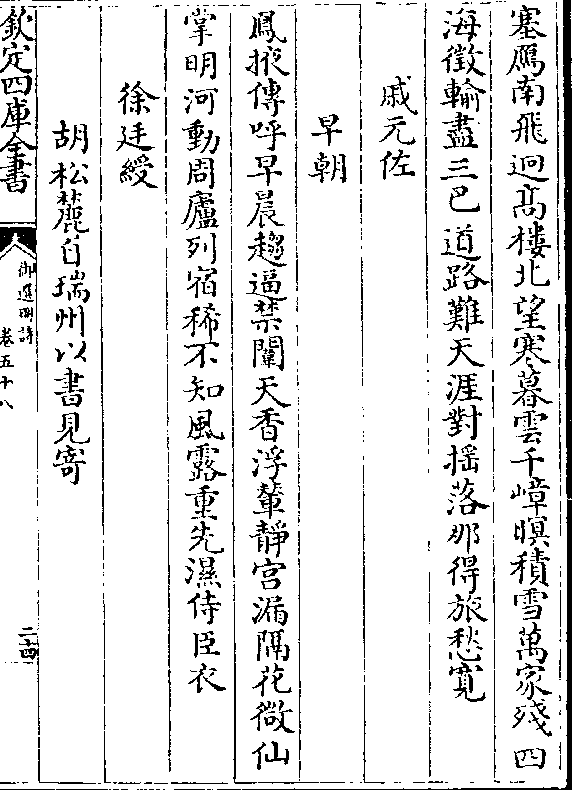 塞鴈南飛迥高樓北望寒暮雲千嶂暝積雪萬家殘四
海徵輸盡三巴道路難天涯對揺落那得旅愁寛
戚元佐
早朝
鳳掖傳呼早晨趨逼禁闈天香浮輦靜宫漏隔花微仙
掌明河動周廬列宿稀不知風露重先濕侍臣衣
徐廷綬
胡松麓自瑞州以書見寄
欽定四庫全書
御選明詩
卷五十八
二十四